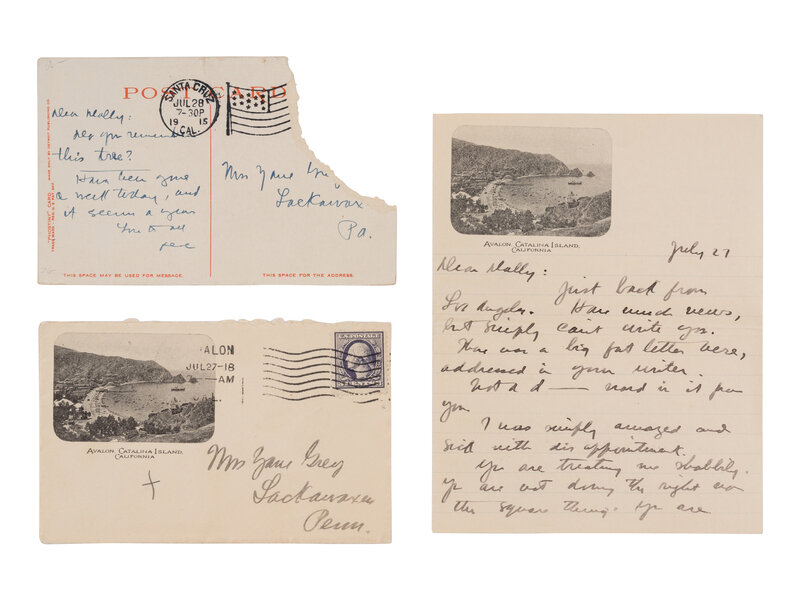 POST CARD
SANTA CRUZ
JUL 28
7-30P
1915
CAL.
Dear Dolly:
Do you remember
this tree?
Have been gone
a week today, and
it seems a year
Love to all
Mrs Zane Grey
Lackawax
Pa.
"PHOSTINT" CARD
MADE ONLY BY DETROIT PUBLISHING CO.
THIS SPACE MAY BE USED FOR MESSAGE.
THIS SPACE FOR THE ADDRESS.
ALON
JUL 27-18
AM
U.S. POSTAGE
AVALON, CATALINA ISLAND,
CALIFORNIA
Mrs Zane Grey
Lackawaxen
Penn.
AVALON, CATALINA ISLAND,
CALIFORNIA
July 27
Dear Dolly:
Just back from
Los Angeles. Have much news,
but simply can't write you.
There was a big fat letter here,
addressed in your
Not a d— word in it from
you
I was simply amazed and
sick with disappointment.
You are treating me shabbily.
You are not doing the right nor
the square thing. You are